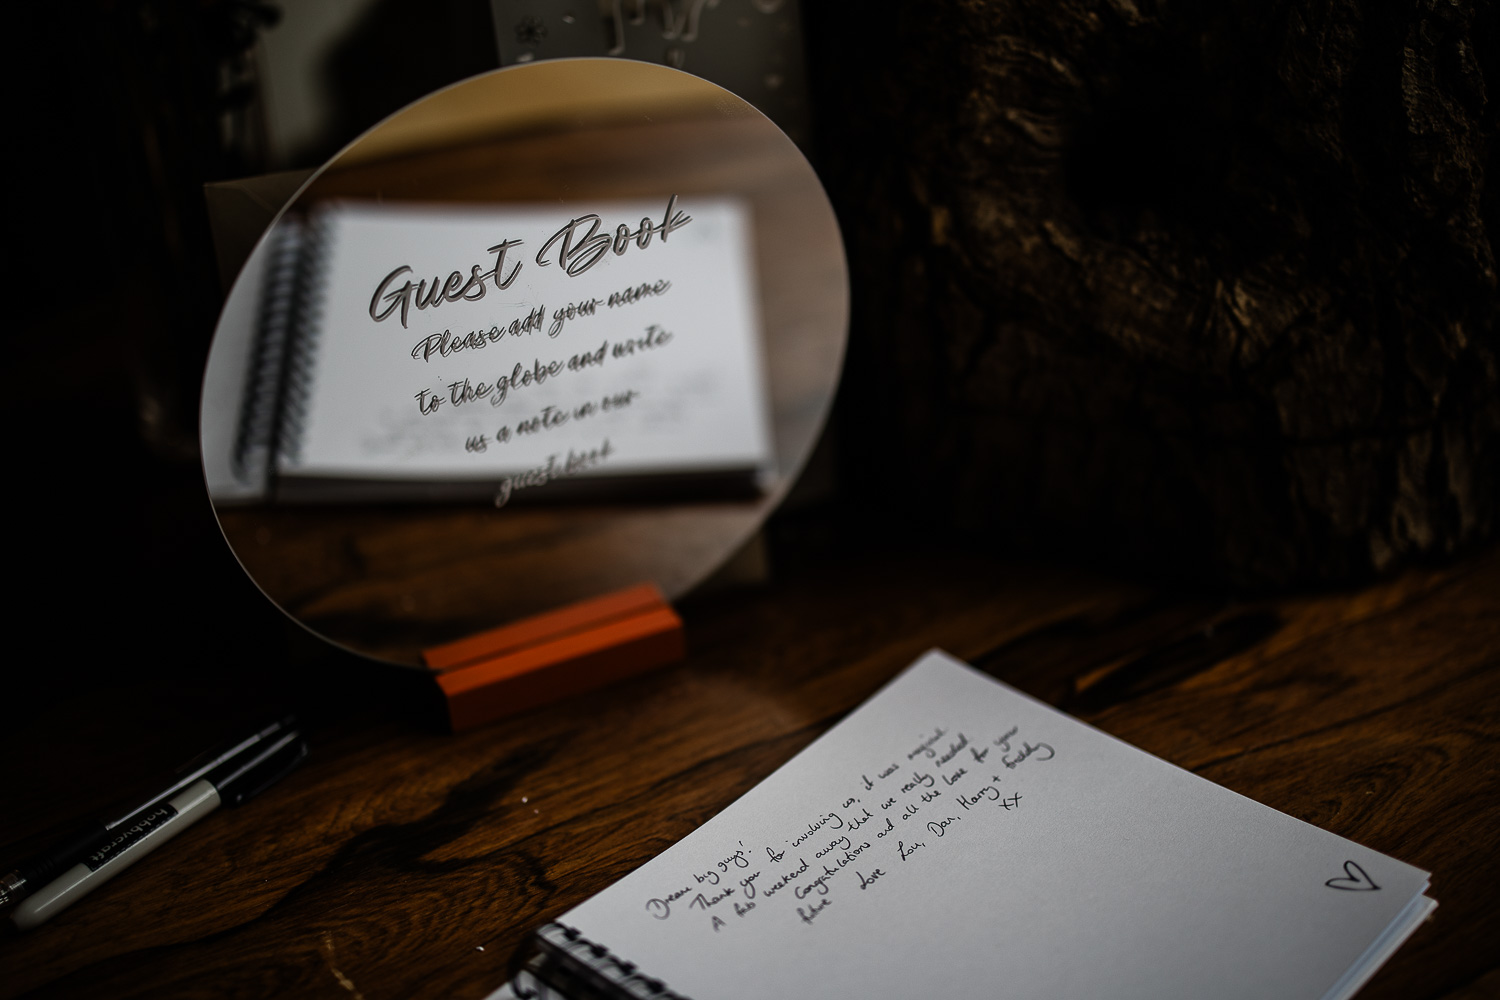 Guest Book
Please add your name
to the globe and write
us a note in our
guest book
hobbycraft
Dream big guys!
Thank you for involving us, it was magical
A fab weekend away that we really needed.
Congratulations and all the love for your
future Love Lou, Dan, Harry + Freddy
xx